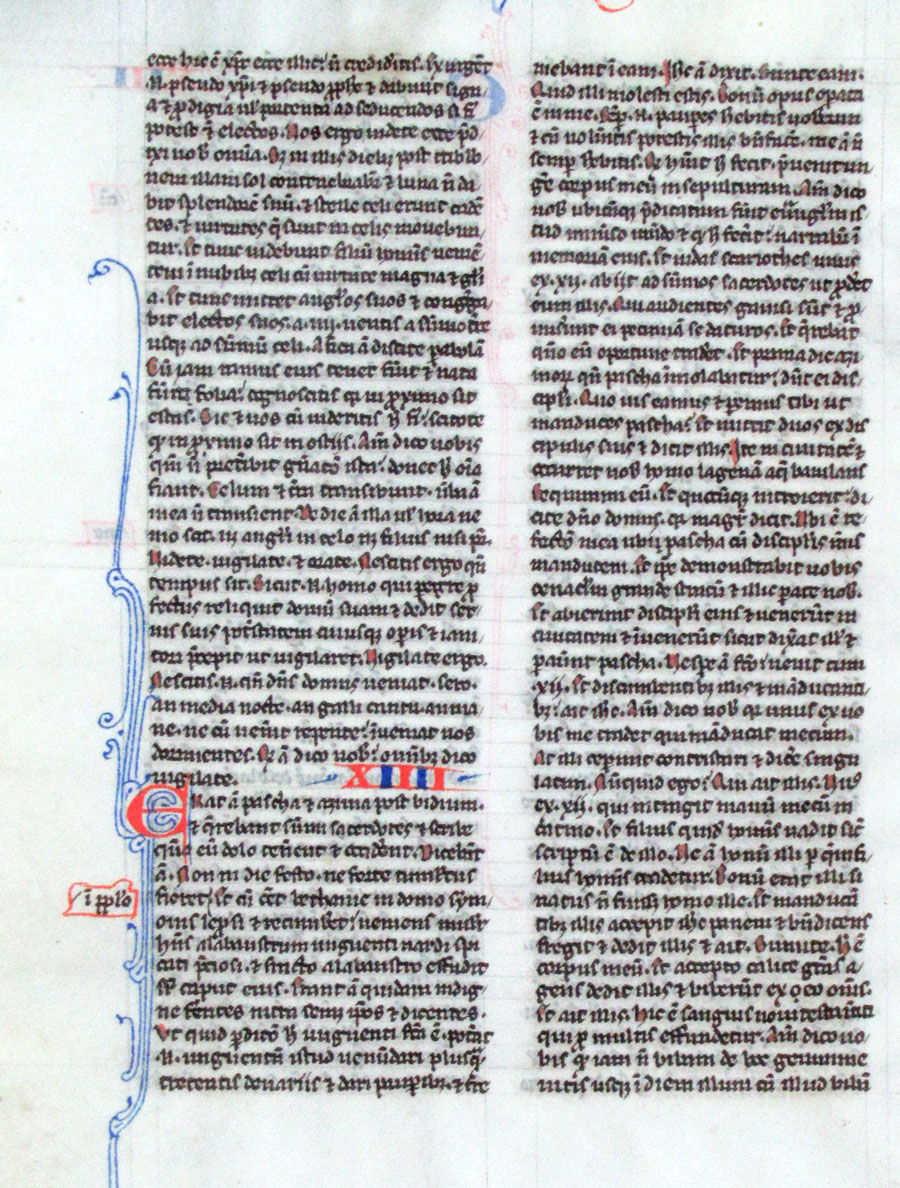 ecce hic ē xp̄c ecce illic: ñ credidẽitis. Exurgẽt
.n. pseudo xp̄i & pseudo ꝓph̄e & dabunt sign̄
a & ꝓdigia ad seducendos si fi͛
potest & electos. Uos ergo uidete ecce p̄d
ixi uob̾ omīa. Sꝫ in illis dieb; post t̾bl̾o
nem illam sol contenebrab̾ & luna ñ da
bit splendorē suū. & stelle celi erunt cadē
tes. & uirtutes q̄ sunt in celis mouebun
tur. Et tunc uidebunt filiū hoīnis ueniē
tem ī nubib; celi cū uirtute magna & gl̄i
a. Et tunc mittet angl̄os suos & cong̾ga
bit electos suos. a .iiii. uentis a sūmo t̾re
usqꝫ ad sūmū celi. A ficu ā discite ꝑabolā
Cū iam ramus eius tener fūit & nata
fūint folia: cognoscitis qꝛ in ꝓximo sit
estas. Sic & uos cū uideritis h̄ fi͛i: scitote
qꝛ in ꝓximo sit in ostiis. Am̄ dico uobis
qm̄ ñ p̄teribit gn̄atō ista: donec h̄ oīa
fiant. Celum & t̾ra transibunt. u̾ba ā
mea ñ transient. De die ā illa ul̾ hora ne
mo scit. nꝫ angl̄i in celo nꝫ filius nisi pr̄.
Uidete. uigilate. & orate. Nescitis ergo qn̄
tempus sit. Sicut .n. homo qui pegre ꝓ
fectus reliquit domū suam & dedit ser
uis suis potestatem cuiusqꝫ opis & iani
tori p̄cepit ut uigilaret. Uigilate ergo.
Nescitis .n. qn̄ dn̄s domus ueniat. sero.
an media nocte. an galli cantu. an ma
ne. ne cū uen̾it repente: īueniat uos
dormientes. Qꝫ ā dico uob̾: omīb; dico
uigilate. XIIII
ERat ā pascha & azima post biduum.
& q̄rebant sūmi sacerdotes & scribe
qūo eū dolo ten̾ent & occid̾ent. Dicebāt
ā. Non in die festo. ne forte tumultus
fieret. Et cū eēt bethanie in domo sym
onis lepsi & recumb̾et: uenit mulr̄
hn̄s alabastrum unguenti nardi spi
cati p̄ciosi. & fracto alabastro effudit
sr̄ caput eius. Erant ā quidam indig
ne ferentes intra semꝫ ip̄os & dicentes.
Ut quid ꝑditō h̄ unguenti fc̄a ē. pot̾at
.n. unguentū istud uenūdari plusq̄
trecentis denariis & dari paupib;. & fre
ī ꝓph̄o
mebant ī eam. Ih̄c ā dixit. Sinite eam.
Quid illi molesti estis. Bonū opus opata
ē in me. Sēp .n. paupes h̄ebitis uobiscum
& cū uolūitis potestis illis bn̄face. me ā ñ
semp h̄ebitis. Qꝫ h̄uit h̄ fecit. p̄uenit un
ge corpus meū in sepulturam. Am̄ dico
uob̾ ubicūqꝫ p̄dicatum fūit euangl̄m is
tud in uniu̾so mūdo & qꝫ h̄ fecit: narrabit̾ ī
memoriā eius. Et iudas scariothes unus
ex .xii. abiit ad sūmos sacerdotes ut ꝓd̾et
eum illis. Qui audientes gauisi sūt & ꝓ
miserunt ei pecuniā se daturos. Et q̄rebat
qūo eū oportune trad̾et. Et prima die azi
morꝫ qn̄ pascha īmolabatur: dn̄t ei dis
cipli. Quo uis eamus & paremus tibi ut
manduces pascha: Et mittit duos ex dis
cipulis suis & dicit illis. Ite in ciuitatē &
occurret uob̾ homo lagenam aq̄ baiulans
sequimini eū. Et quocūqꝫ introierit: di
cite dn̄o domus. qꝛ magr̄ dicit. Ubi ē re
fectio mea ubi pascha cū discipl̄is meis
manducem. Et ip̄e demonstrabit uobis
cenaclm̄ grande stratū & illic parate nob̾.
Et abierunt discipl̄i eius & uenerūt in
ciuitatem & īuenerūt sicut dix̾at ill̾ &
parau̾nt pascha. Uespe ā fc̄o: uenit cum
.xii. Et discumbentib; illis & māducanti
b;: ait ih̄c. Am̄ dico uob̾ qꝛ unus ex uo
bis me tradet qui māducat mecum.
At illi ceperunt contristari & dice singu
latim. Nūquid ego: Qui ait illis. Unus
ex .xii. qui intingit manū mecū in
catino. Et filius quidē hoīnis uadit sic̄
scriptū ē de illo. Ue ā hoīni illi ꝑ quē fi
lius hoīnis tradetur. Bonū erat illi si
natus ñ fuiss̾ homo ille. Et manducā
tib; illis accepit ih̄c panem & bn̄dicens
fregit & dedit illis & ait. Sumite. h̄ ē
corpus meū. Et accepto calice grās a
gens dedit illis & biberūt ex eo om̄s.
Et ait illis. Hic ē sanguis noui testamti
qui ꝓ multis effundetur. Am̄ dico uo
bis qꝛ iam ñ bibam de hoc genimine
uitis usqꝫ ī diem illum cū illud bibā